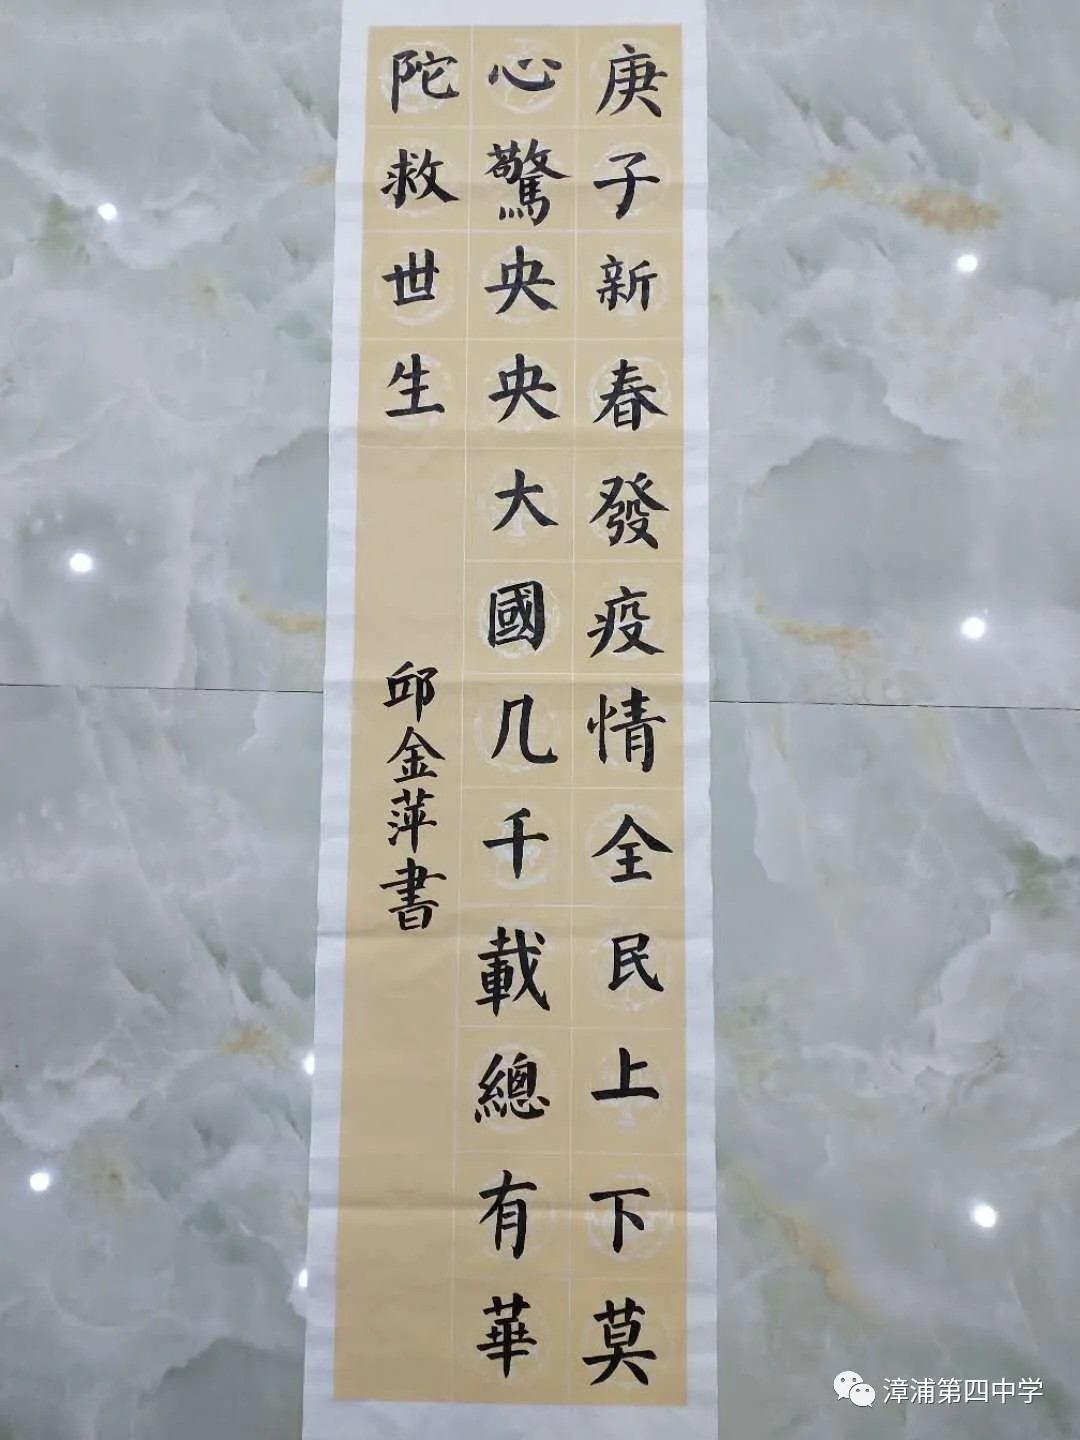 庚子新春發疫情全民上下莫
心驚央央大國几千載總有華
陀救世生
邱金萍書
漳浦第四中学